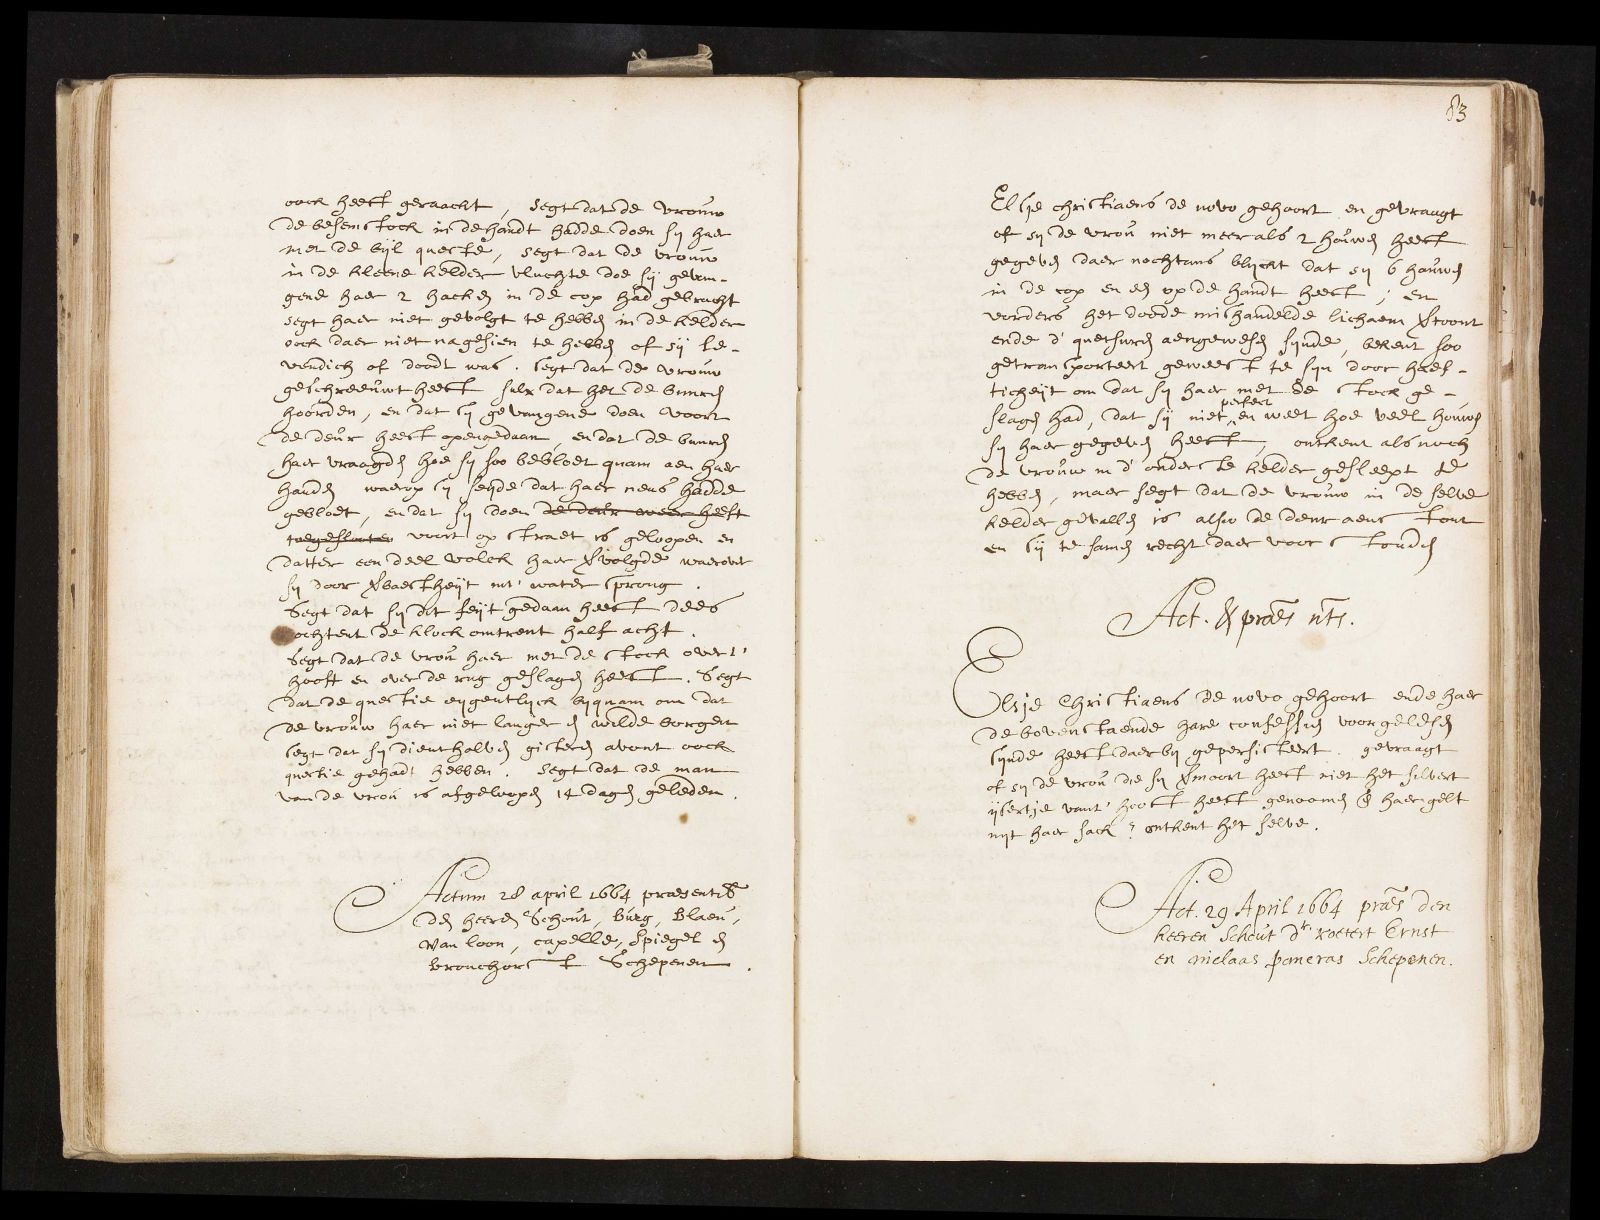 oock heeft geraackt, segt dat de vrouw
de besemstock in de handt hadde doen sij haer
met de bijl queste, segt dat de vrouw
in de kleene kelder vluchte doe sij gevan-
gene haer 2 hacken in de cop had gebracht
segt haer niet gevolgt te hebben in de kelder
oock daer niet nagesien te hebben of sij le-
vendich of doodt was. segt dat de vrouw
geschreeuwt heeft sulx dat het de buuren
hoorden, en dat sij gevangene doen voort
de deur heeft opengedaan, en dat de buuren
haer vraagden hoe sij soo bebloet quam aen haer
handen waerop sij seyde dat haer neus hadde
gebloet, en dat sij doen de deur weer heeft
toegeslooten voort op straet is geloopen en
datter een deel volck haer vervolgde waerover
sij door verbaestheijt int' water sprong.
Segt dat sij dit feijt gedaan heeft dees
ochtent de klock omtrent half acht.
Segt dat de vrou haer met de stock over t'
hooft en over de rug geslagen heeft. Segt
dat de questie eygentlyck byquam om dat
de vrouw haer niet langer en wilde borgen
segt dat sij dienthalven gisteren avont oock
questie gehadt hebben. Segt dat de man
van de vrou is afgeloopen 14 dagen geleden.
Actum 28 april 1664 præsentibus
den heeren Schout, Burg, Blaeu,
van loon, capelle, spiegel en
bronchorst Schepenen.
83
Elsje christiaens de novo gehoort en gevraagt
of sij de vrou niet meer als 2 houwen heeft
gegeven daer nochtans blyckt dat sij 6 houwen
in de cop en een op de handt heeft; en
vorders het doode mishandelde lichaem vertoont
ende d' quetsuren aengewesen synde, bekent soo
getransporteert geweest te syn door haes-
ticheijt om dat sij haer met de stock ge-
slagen had, dat sij niet perfect en weet hoe veel houwen
sij haer gegeven heeft, ontkent als noch
de vrouw in d' onderste kelder gesleept te
hebben, maer segt dat de vrouw in de selve
kelder gevallen is also de deur aens tont
en sij te samen recht daer voor stonden
Act. & præs nts.
Elsje Christiaens de novo gehoort ende haer
de bovenstaende hare confessien voorgelesen
synde heeft daerby gepersisteert. gevraagt
of sij de vrou die sij vermoort heeft niet het silvert
ijsertje vant' hooft heeft genoomen & haer gelt
uyt haer sack? ontkent het selve.
Act. 29 April 1664 præs den
heeren Schout Dr. roetert Ernst
en niclaas pancras Schepenen.